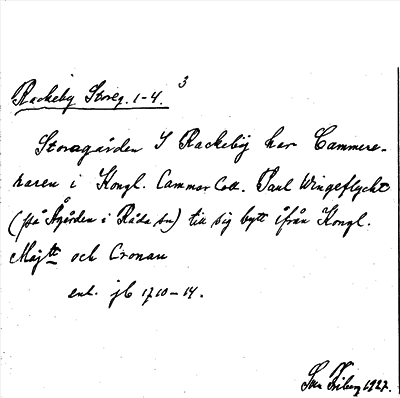 Rackeby Storeg. 1-4. 3
Storagården I Rackeby har Cammere-
raren i Kongl. Cammar Coll. Paul Wingeflycht
(på Ågården i Råda sn) till sig bytt ifrån Kongl.
Maj:tt och Cronan
enl. jb 1710-14.
Friberg 1927.